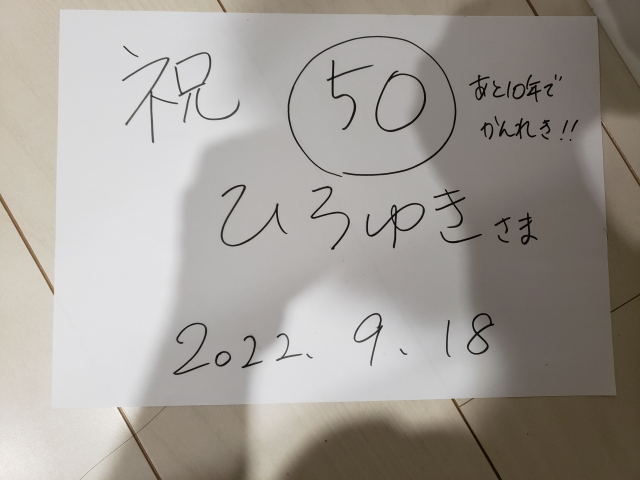 祝 50
あと10年で
かんれき!!
ひろゆきさま
2022.9.18